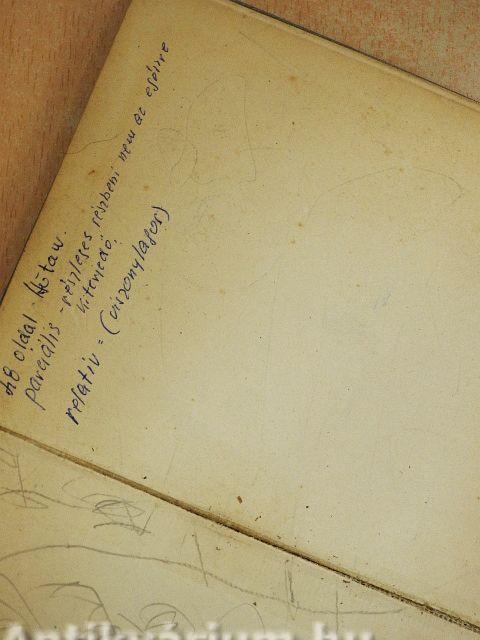 48 oldal Hőtan.
parciális - részleges részbeni nem az egészre
kiterjedő.
relativ = (viszonylagos)
Antikvárium.hu